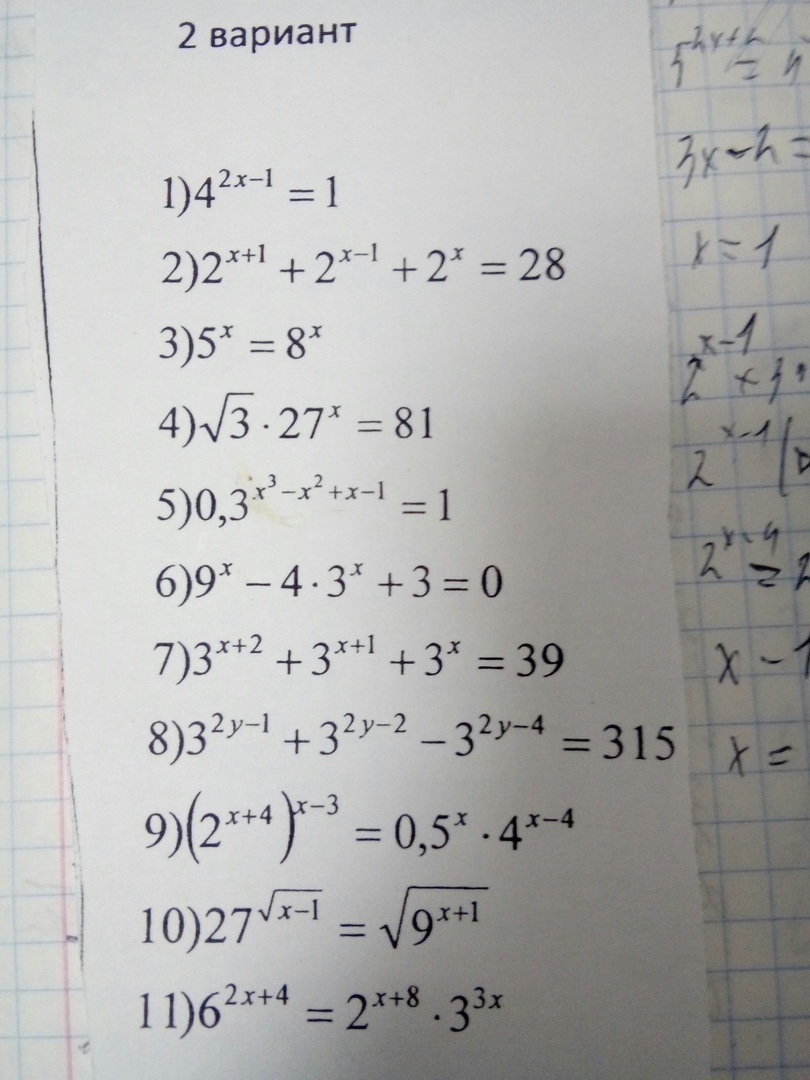 2 вариант
1)4^{2x-1} = 1
2)2^{x+1} + 2^{x-1} + 2^x = 28
3)5^x = 8^x
4)√3 · 27^x = 81
5)0,3^{x^3-x^2+x-1} = 1
6)9^x - 4 · 3^x + 3 = 0
7)3^{x+2} + 3^{x+1} + 3^x = 39
8)3^{2y-1} + 3^{2y-2} - 3^{2y-4} = 315
9)(2^{x+4})^{x-3} = 0,5^x · 4^{x-4}
10)27^{√(x-1)} = √(9^{x+1})
11)6^{2x+4} = 2^{x+8} · 3^{3x}
3x-2=
x=1
x-1
x =